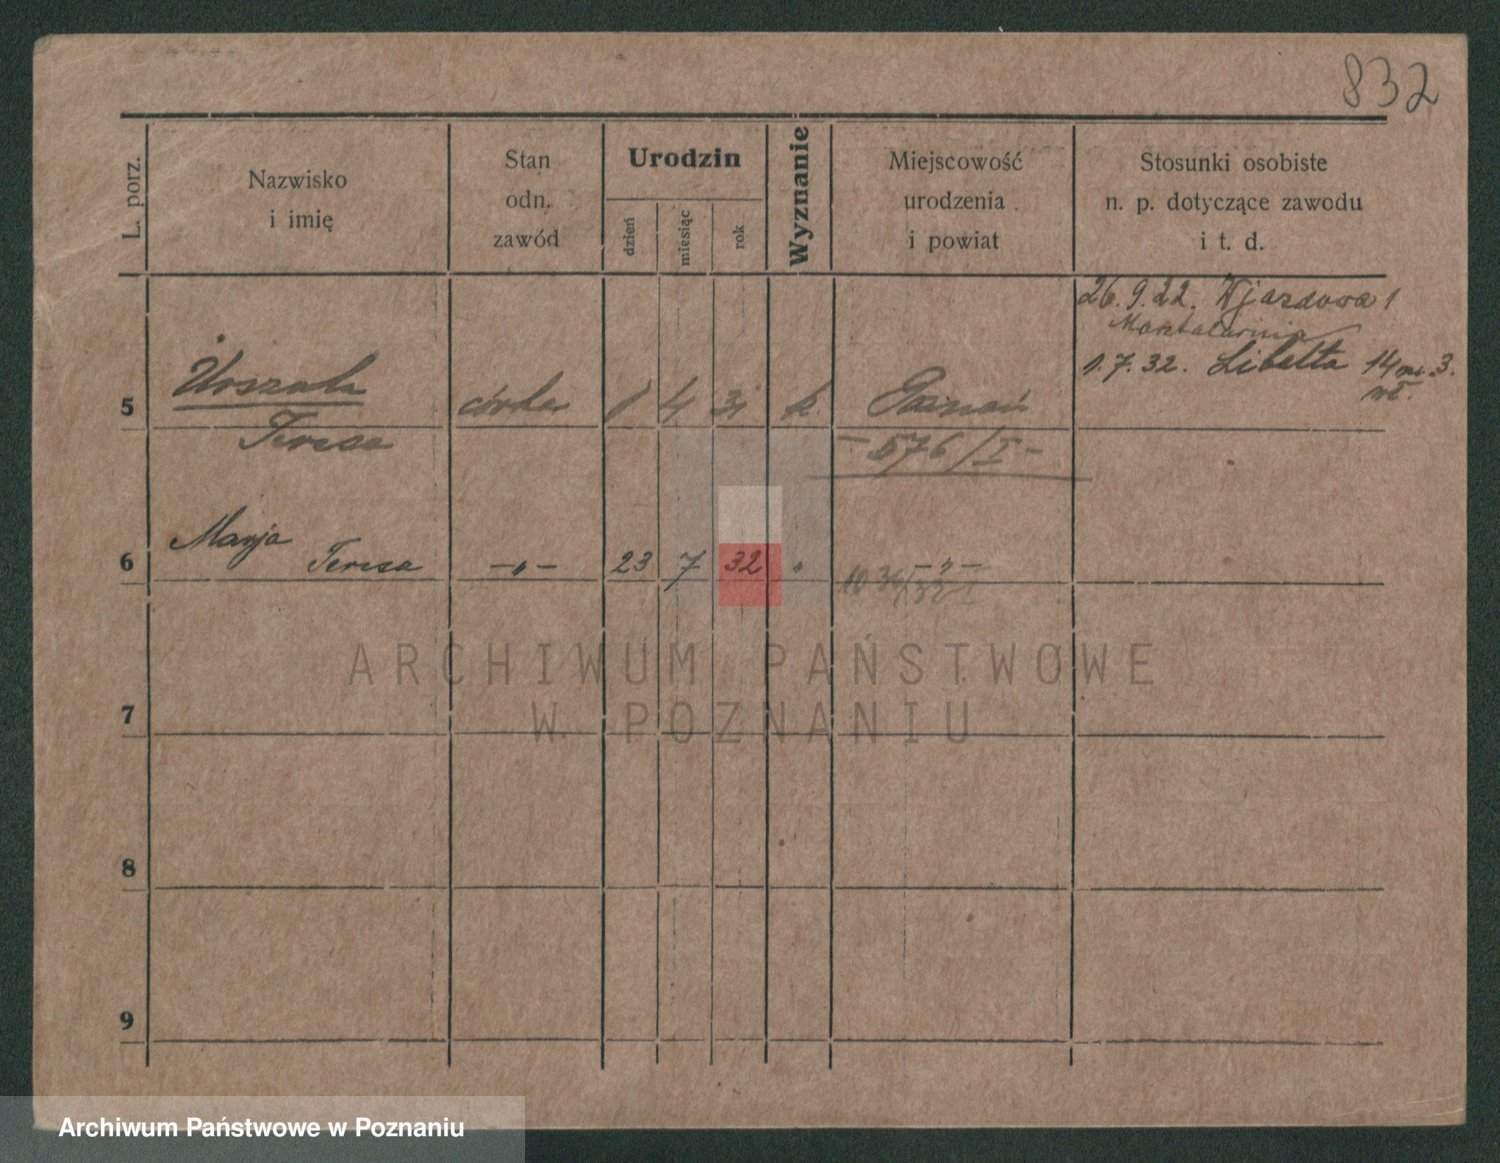 832
L. porz.
Nazwisko
i imię
Stan
odn.
zawód
Urodzin
dzień
miesiąc
rok
Wyznanie
Miejscowość
urodzenia
i powiat
Stosunki osobiste
n. p. dotyczące zawodu
i t. d.
26.9.22. Wjazdowa 1
Masztalarnia
1.7.32. Libelta 14 m. 3.
5 Urszula córka 1 4 31 k Poznań
Teresa
- 576/I -
Marja
6 Teresa -"- 23 7 32 " -"-
7
8
9
ARCHIWUM PAŃSTWOWE
W POZNANIU
Archiwum Państwowe w Poznaniu